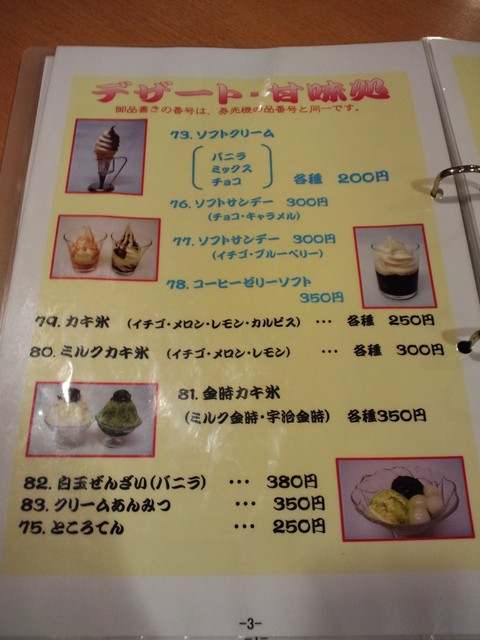 デザート・甘味処
御品書きの番号は、券売機の品番号と同一です。
73. ソフトクリーム
バニラ
ミックス
チョコ
各種 200円
76. ソフトサンデー 300円
(チョコ・キャラメル)
77. ソフトサンデー 300円
(イチゴ・ブルーベリー)
78. コーヒーゼリーソフト
350円
79. カキ氷 (イチゴ・メロン・レモン・カルピス) … 各種 250円
80. ミルクカキ氷 (イチゴ・メロン・レモン) … 各種 300円
81. 金時カキ氷
(ミルク金時・宇治金時) 各種350円
82. 白玉ぜんざい(バニラ) … 380円
83. クリームあんみつ … 350円
75. ところてん … 250円
-3-